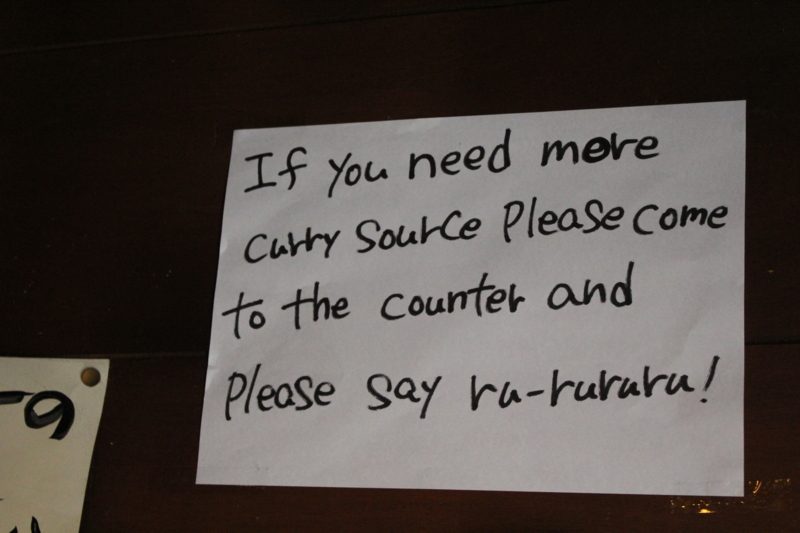 If you need more
curry source Please come
to the counter and
Please say ru-rururu!